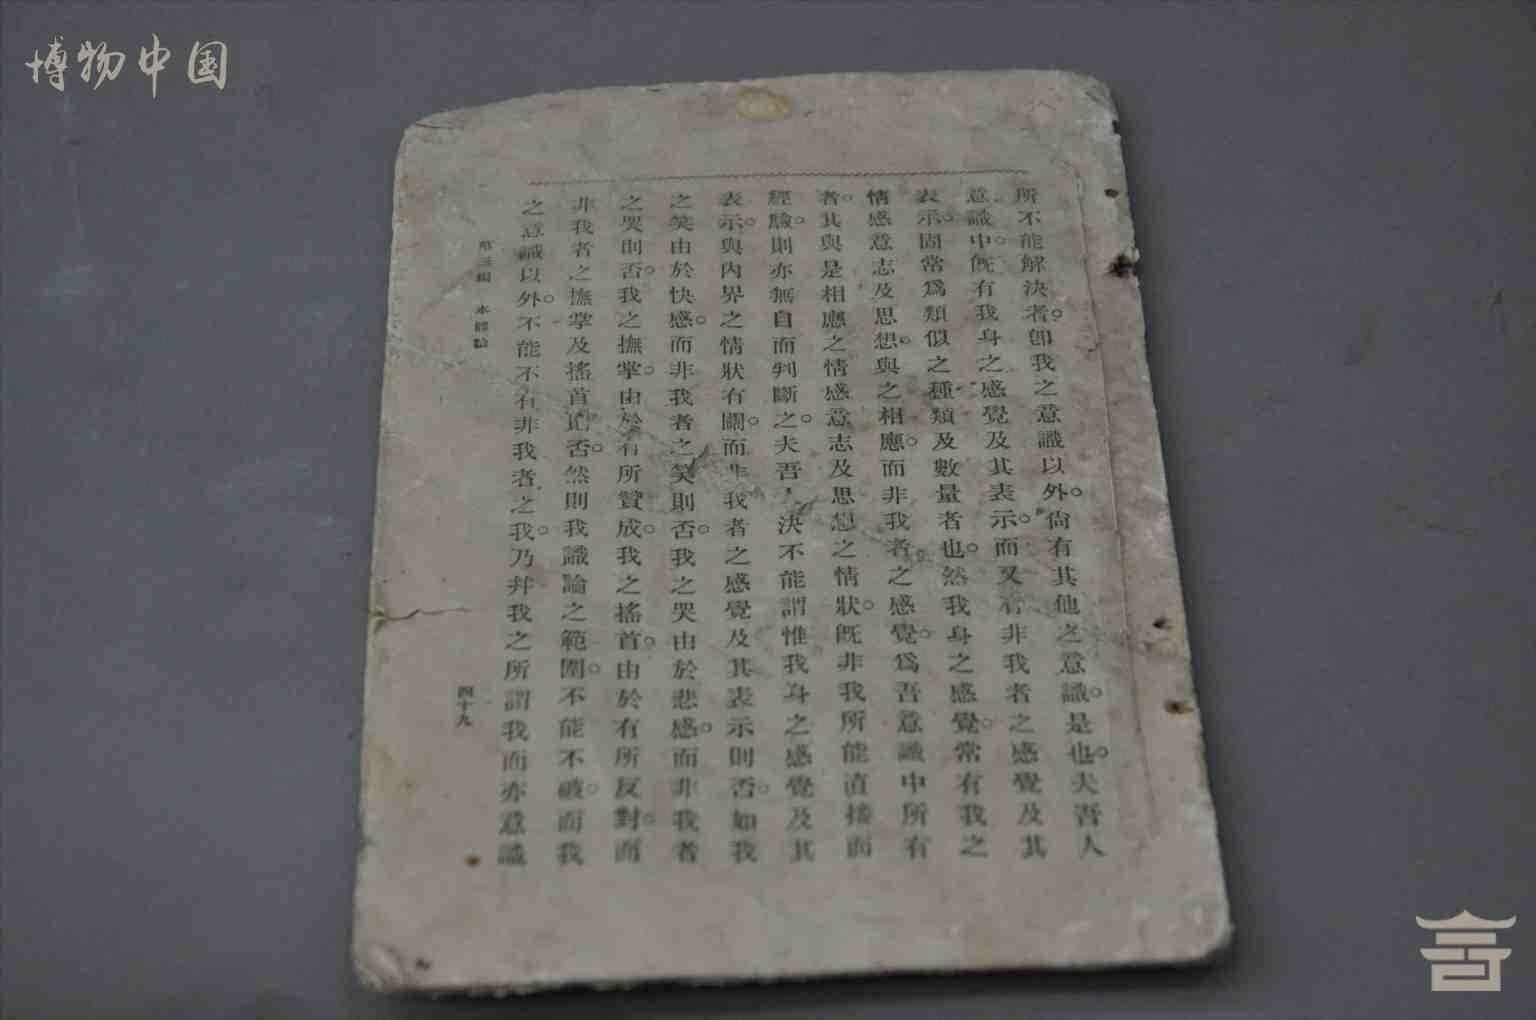 博物中国
所不能解決者。卽我之意識以外。尙有其他之意識。是也。夫吾人
意識中。旣有我身之感覺及其表示。而又有非我者之感覺及其
表示。固常爲類似之種類及數量者也。然我身之感覺。常有我之
情感意志及思想與之相應。而非我者之感覺。爲吾意識中所有
者。其與是相應之情感意志及思想之情狀。旣非我所能直接而
經驗。則亦無自而判斷之。夫吾人決不能謂惟我身之感覺及其
表示。與內界之情狀有關。而非我者之感覺及其表示則否。如我
之笑由於快感。而非我者之笑則否。我之哭由於悲感。而非我者
之哭則否。我之撫掌。由於有所贊成。我之搖首。由於有所反對。而
非我者之撫掌及搖首則否。然則我識論之範圍。不能不破。而我
之意識以外。不能不有非我者之我。乃幷我之所謂我而亦意識
第三編 本體論
四十九